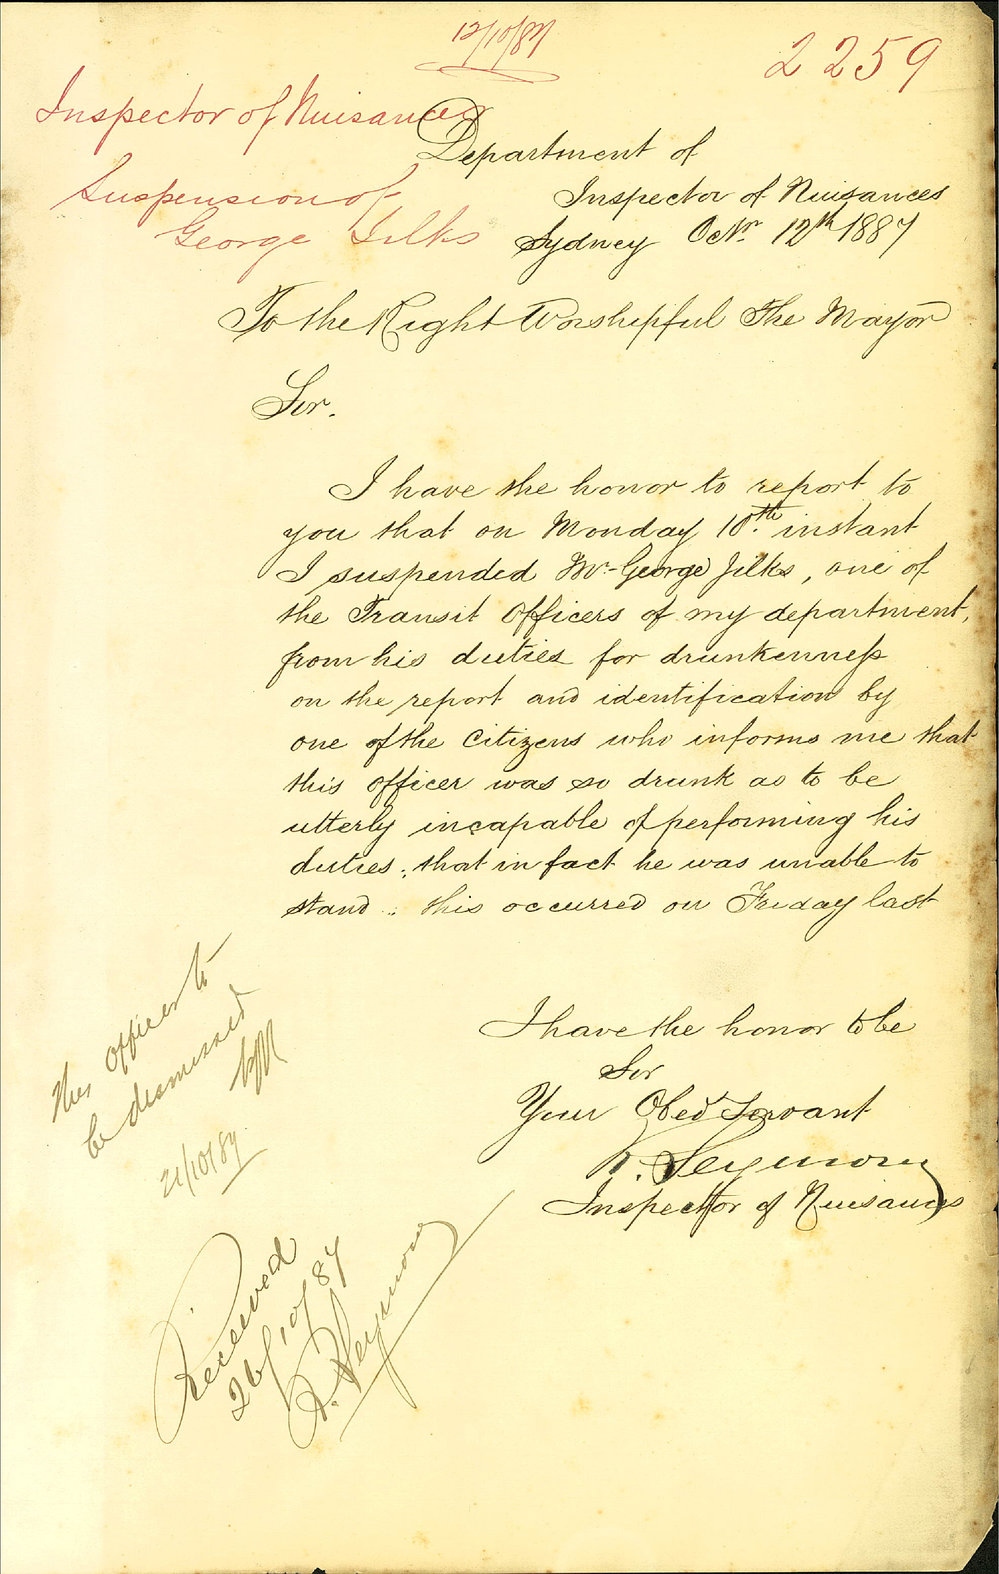 12/10/87
2259
Inspector of Nuisances
Suspension of
George Jilks
Department of
Inspector of Nuisances
Sydney Octr. 12th 1887
To the Right Worshipful The Mayor
Sir.
I have the honor to report to
you that on Monday 10th. instant
I suspended Mr. George Jilks, one of
the Transit Officers of my department,
from his duties for drunkenness
on the report and identification by
one of the Citizens who informs me that
this officer was so drunk as to be
utterly incapable of performing his
duties; that in fact he was unable to
stand; this occurred on Friday last
I have the honor to be
Sir
Your Obed Servant
R. Seymour
Inspector of Nuisances
This Officer to
be dismissed
21/10/87
Received
26/10/87
R. Seymour